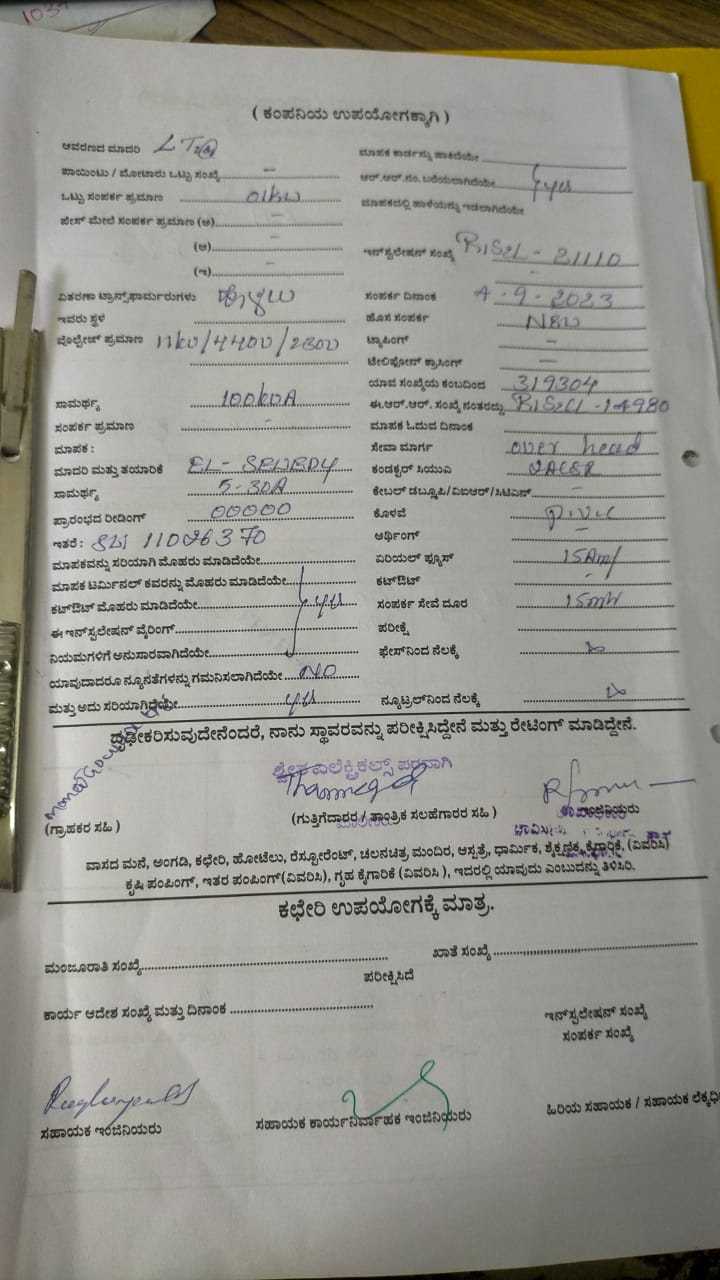 ( ಕಂಪನಿಯ ಉಪಯೋಗಕ್ಕಾಗಿ )
ಆವರಣದ ಮಾದರಿ LT
ಪಾಯಿಂಟು / ಮೋಟಾರು ಒಟ್ಟು ಸಂಖ್ಯೆ –
ಒಟ್ಟು ಸಂಪರ್ಕ ಪ್ರಮಾಣ 01kw
ಪೇಸ್ ಮೇಲೆ ಸಂಪರ್ಕ ಪ್ರಮಾಣ (ಅ) –
(ಆ) –
(ಇ) –
ವಿತರಣಾ ಟ್ರಾನ್ಸ್‌ಫಾರ್ಮರುಗಳು
ಇವರು ಸ್ಥಳ
ವೊಲ್ಟೇಜ್ ಪ್ರಮಾಣ 11kv/4400/2300
ಸಾಮರ್ಥ್ಯ 100kVA
ಸಂಪರ್ಕ ಪ್ರಮಾಣ –
ಮಾಪಕ :
ಮಾದರಿ ಮತ್ತು ತಯಾರಿಕೆ EL- SEWEDY
ಸಾಮರ್ಥ್ಯ 5-30A
ಪ್ರಾರಂಭದ ರೀಡಿಂಗ್ 00000
ಇತರೆ : 11026370
ಮಾಪಕವನ್ನು ಸರಿಯಾಗಿ ಮೊಹರು ಮಾಡಿದೆಯೇ
ಮಾಪಕ ಟರ್ಮಿನಲ್ ಕವರನ್ನು ಮೊಹರು ಮಾಡಿದೆಯೇ
ಕಟ್‌ಔಟ್ ಮೊಹರು ಮಾಡಿದೆಯೇ yes
ಈ ಇನ್‌ಸ್ಟಲೇಷನ್ ವೈರಿಂಗ್
ನಿಯಮಗಳಿಗೆ ಅನುಸಾರವಾಗಿದೆಯೇ
ಯಾವುದಾದರೂ ನ್ಯೂನತೆಗಳನ್ನು ಗಮನಿಸಲಾಗಿದೆಯೇ NO
ಮತ್ತು ಅದು ಸರಿಯಾಗಿದ್ದೆಯೇ yes
ಮಾಪಕ ಕಾರ್ಡನ್ನು ಹಾಕಿದೆಯೇ
ಆರ್.ಆರ್.ನಂ. ಬರೆಯಲಾಗಿದೆಯೇ yes
ಮಾಪಕದಲ್ಲಿ ಹಾಳೆಯನ್ನು ಇಡಲಾಗಿದೆಯೇ
ಇನ್‌ಸ್ಟಲೇಷನ್ ಸಂಖ್ಯೆ RISEL - 21110
ಸಂಪರ್ಕ ದಿನಾಂಕ 4-9-2023
ಹೊಸ ಸಂಪರ್ಕ New
ಟ್ಯಾಪಿಂಗ್ –
ಟೆಲಿಫೋನ್ ಕ್ರಾಸಿಂಗ್ –
ಯಾವ ಸಂಖ್ಯೆಯ ಕಂಬದಿಂದ 319304
ಈ.ಆರ್.ಆರ್. ಸಂಖ್ಯೆ ನಂತರದ್ದು -14980
ಮಾಪಕ ಓದುವ ದಿನಾಂಕ
ಸೇವಾ ಮಾರ್ಗ over head
ಕಂಡಕ್ಟರ್ ಸಿಯುಎ
ಕೇಬಲ್ ಡಬ್ಲೂಪಿ/ವಿಐಆರ್/ಸಿಟಿಎಸ್ –
ಕೊಳವೆ P.V.C
ಅರ್ಥಿಂಗ್
ಏರಿಯಲ್ ಫ್ಯೂಸ್ 15Amp
ಕಟ್‌ಔಟ್ –
ಸಂಪರ್ಕ ಸೇವೆ ದೂರ
ಪರೀಕ್ಷೆ
ಫೇಸ್‌ನಿಂದ ನೆಲಕ್ಕೆ
ನ್ಯೂಟ್ರಲ್‌ನಿಂದ ನೆಲಕ್ಕೆ
ದೃಢೀಕರಿಸುವುದೇನೆಂದರೆ, ನಾನು ಸ್ಥಾವರವನ್ನು ಪರೀಕ್ಷಿಸಿದ್ದೇನೆ ಮತ್ತು ರೇಟಿಂಗ್ ಮಾಡಿದ್ದೇನೆ.
ಎಲೆಕ್ಟ್ರಿಕಲ್ಸ್ ಪರವಾಗಿ
(ಗ್ರಾಹಕರ ಸಹಿ )
(ಗುತ್ತಿಗೆದಾರರ / ತಾಂತ್ರಿಕ ಸಲಹೆಗಾರರ ಸಹಿ )
ವಾಸದ ಮನೆ, ಅಂಗಡಿ, ಕಛೇರಿ, ಹೋಟೆಲು, ರೆಸ್ಟೋರೆಂಟ್, ಚಲನಚಿತ್ರ ಮಂದಿರ, ಆಸ್ಪತ್ರೆ, ಧಾರ್ಮಿಕ, ಶೈಕ್ಷಣಿಕ, ಕೈಗಾರಿಕೆ, (ವಿವರಿಸಿ)
ಕೃಷಿ ಪಂಪಿಂಗ್, ಇತರ ಪಂಪಿಂಗ್(ವಿವರಿಸಿ), ಗೃಹ ಕೈಗಾರಿಕೆ (ವಿವರಿಸಿ ), ಇದರಲ್ಲಿ ಯಾವುದು ಎಂಬುದನ್ನು ತಿಳಿಸಿರಿ.
ಕಛೇರಿ ಉಪಯೋಗಕ್ಕೆ ಮಾತ್ರ.
ಮಂಜೂರಾತಿ ಸಂಖ್ಯೆ
ಖಾತೆ ಸಂಖ್ಯೆ
ಪರೀಕ್ಷಿಸಿದೆ
ಕಾರ್ಯ ಆದೇಶ ಸಂಖ್ಯೆ ಮತ್ತು ದಿನಾಂಕ
ಇನ್‌ಸ್ಟಲೇಷನ್ ಸಂಖ್ಯೆ
ಸಂಪರ್ಕ ಸಂಖ್ಯೆ
ಸಹಾಯಕ ಇಂಜಿನಿಯರು
ಸಹಾಯಕ ಕಾರ್ಯನಿರ್ವಾಹಕ ಇಂಜಿನಿಯರು
ಹಿರಿಯ ಸಹಾಯಕ / ಸಹಾಯಕ